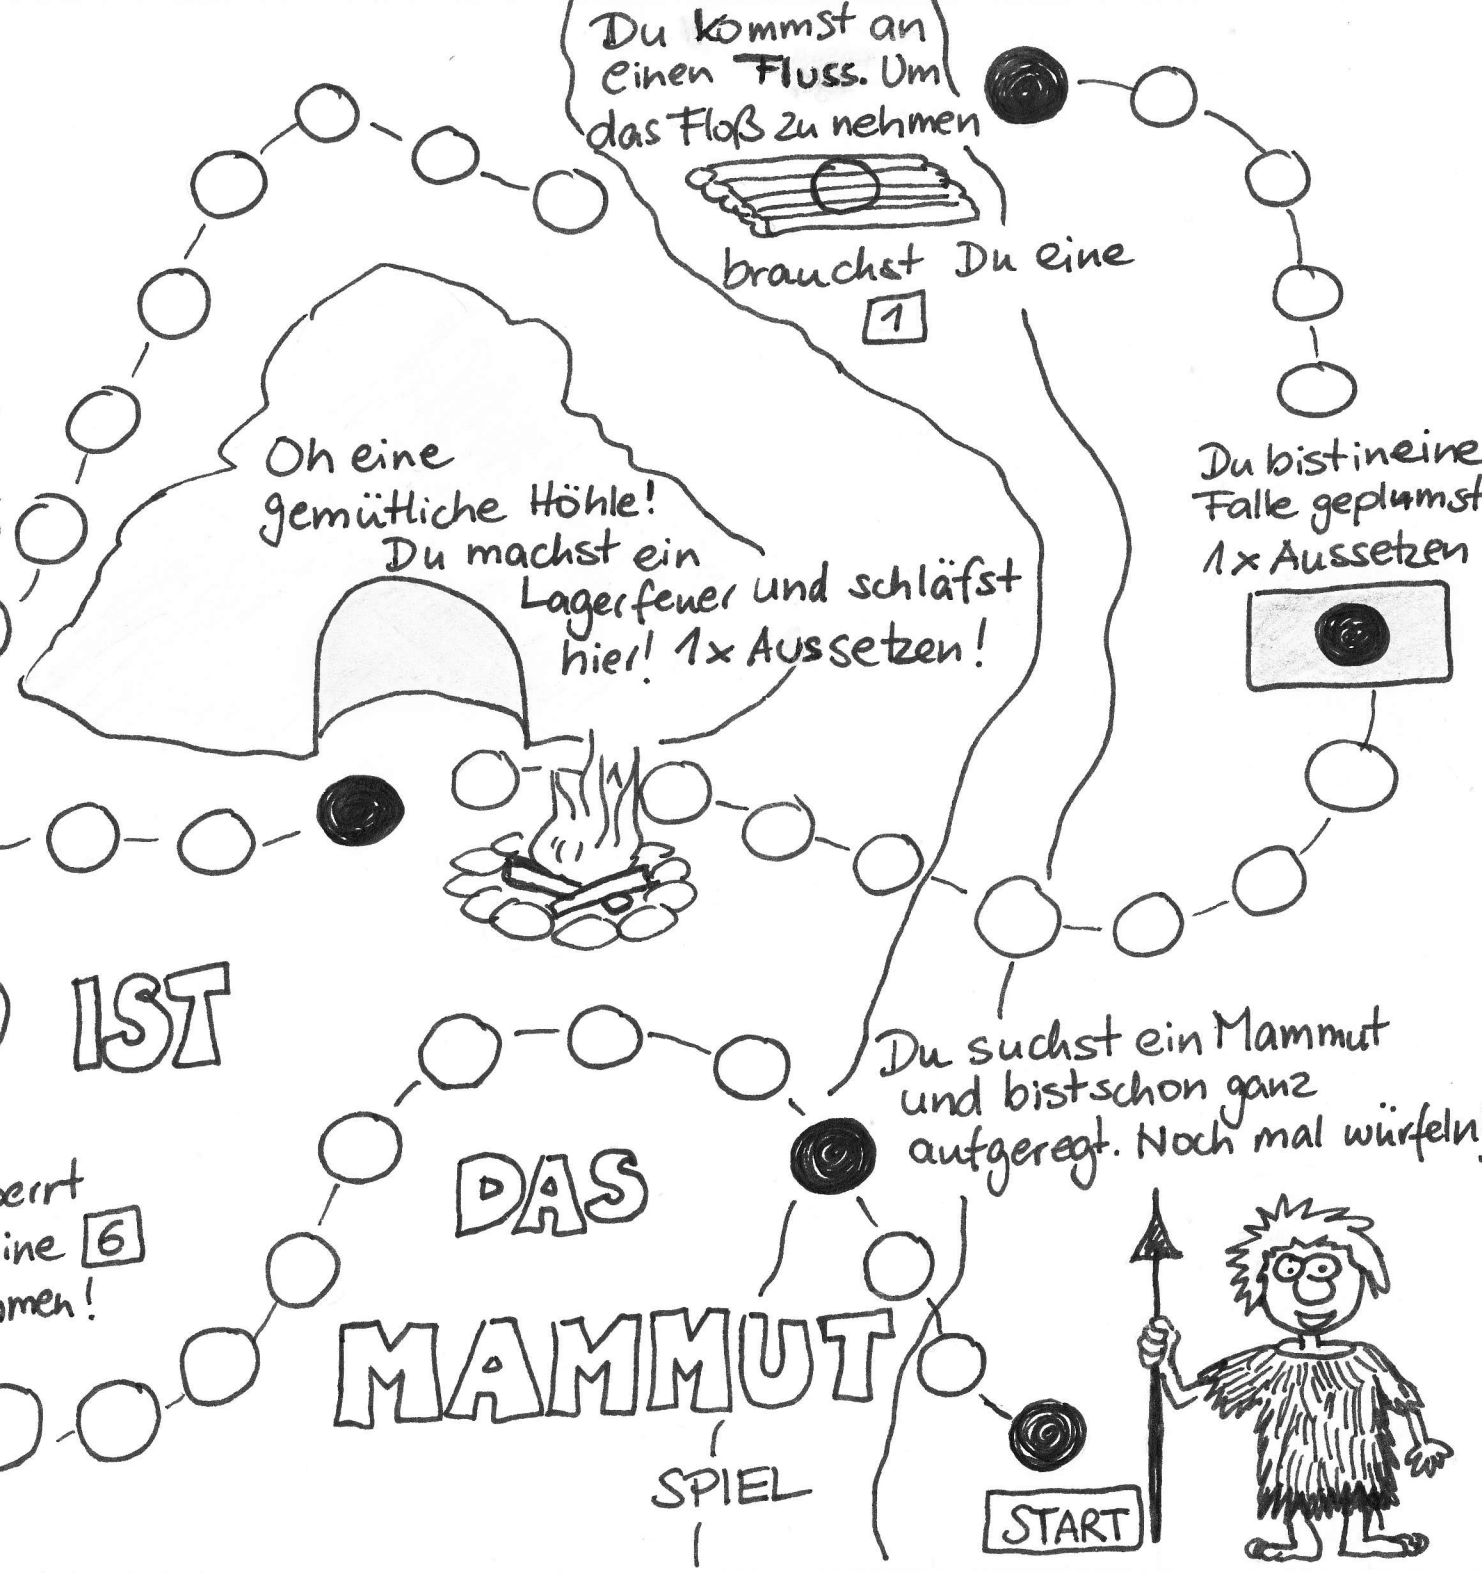 Du kommst an
einen Fluss. Um
das Floß zu nehmen
brauchst Du eine
1
Oh eine
gemütliche Höhle!
Du machst ein
Lagerfeuer und schläfst
hier! 1x Aussetzen!
Du bist in eine
Falle geplumst
1x Aussetzen
IST
Du suchst ein Mammut
und bist schon ganz
aufgeregt. Noch mal würfeln
perrt
ine 6
mmen!
DAS
MAMMUT
SPIEL
START